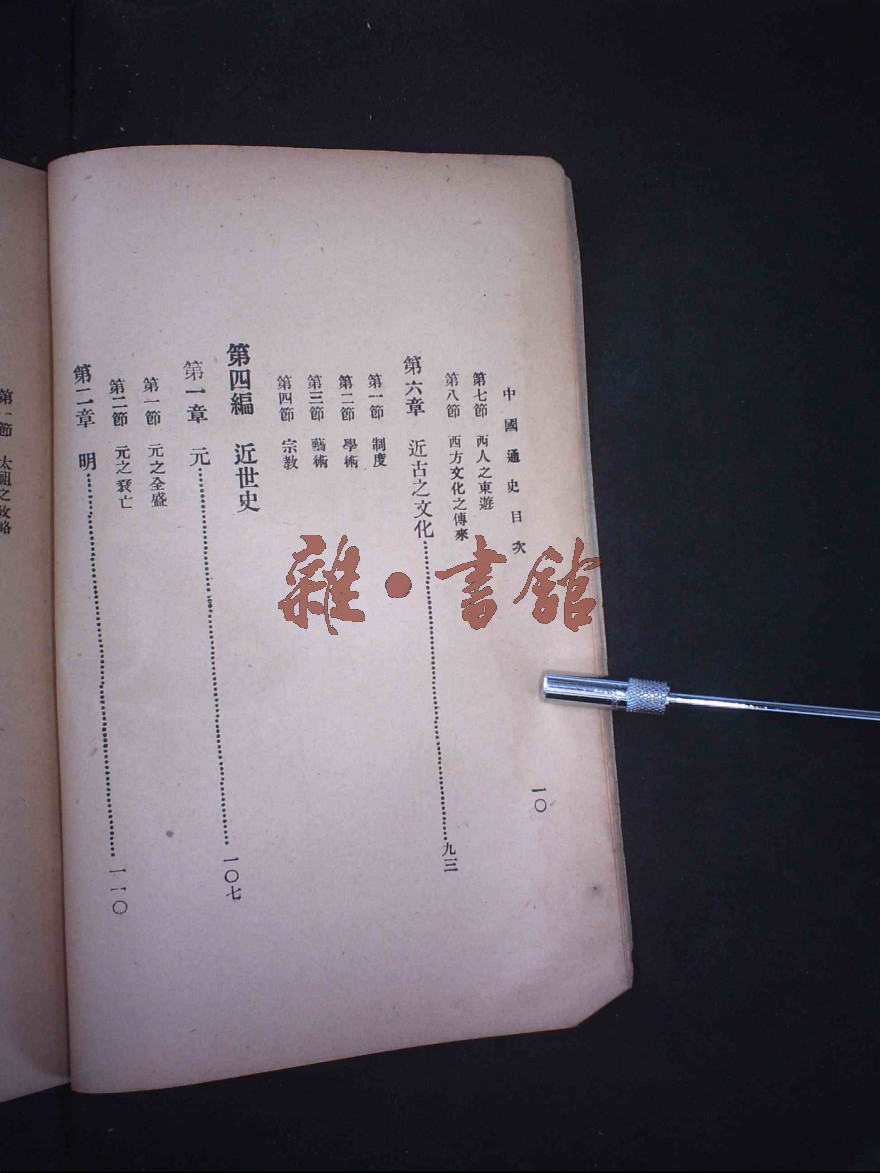 中國通史目次
一〇
第七節 西人之東遊
第八節 西方文化之傳來
第六章 近古之文化……九三
第一節 制度
第二節 學術
第三節 藝術
第四節 宗教
第四編 近世史
第一章 元……一〇七
第一節 元之全盛
第二節 元之衰亡
第二章 明……一一〇
第一節 太祖之攻略
雜·書館